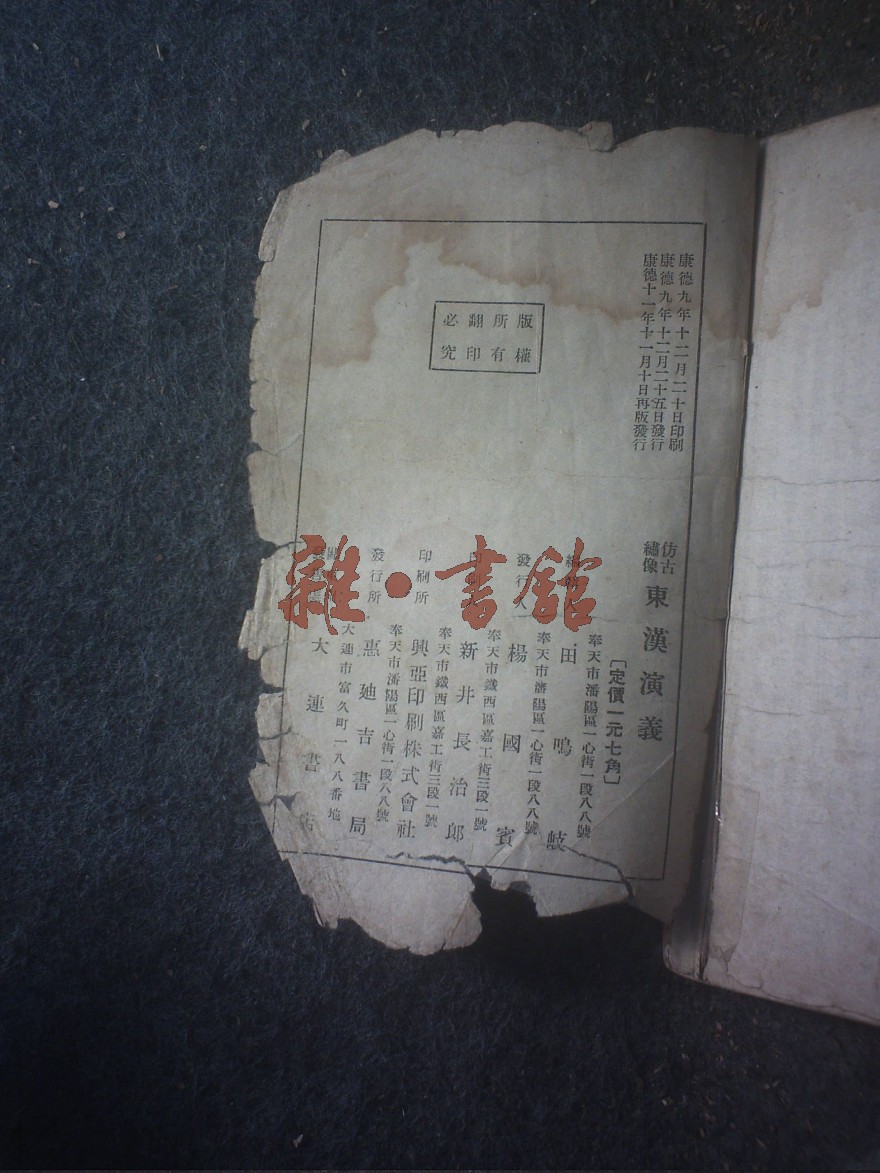 康德九年十二月二十日印刷
康德九年十二月二十五日發行
康德十一年十一月十日再版發行
版權
所有
翻印
必究
仿古
繡像
東漢演義
〔定價一元七角〕
奉天市瀋陽區一心街一段八八號
田鳴岐
奉天市瀋陽區一心街一段八八號
發行人 楊國賓
奉天市鐵西區嘉工街三段一號
新井長治郎
奉天市鐵西區嘉工街三段一號
印刷所 興亞印刷株式會社
奉天市瀋陽區一心街一段八八號
發行所 惠廸吉書局
大連市富久町一八八番地
大連書店
雜·書館